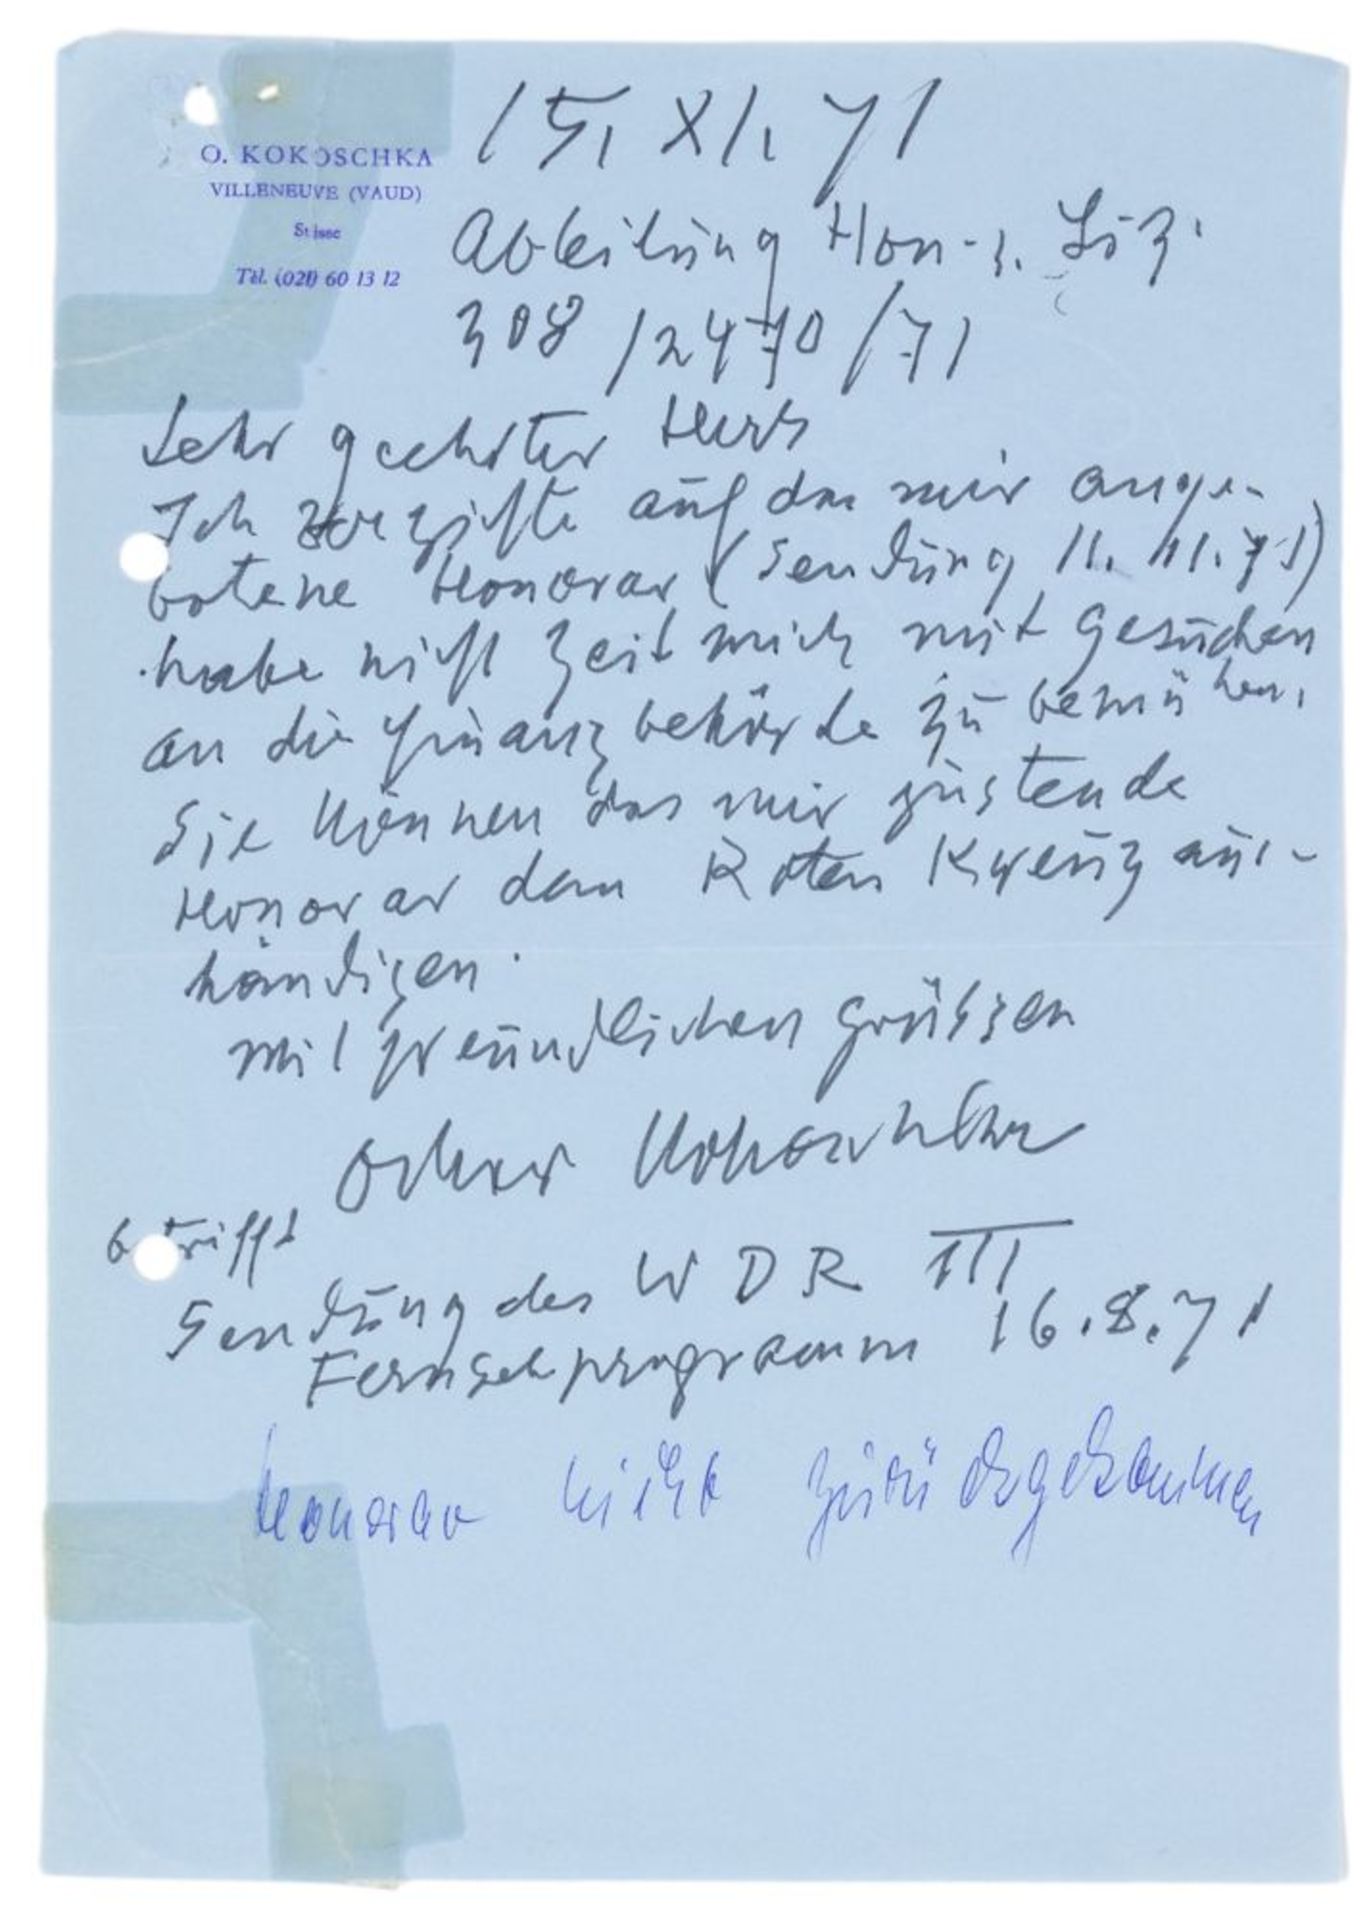 O. KOKOSCHKA
VILLENEUVE (VAUD)
Suisse
Tél. (021) 60 13 12
15. XI. 71
Abteilung Hon- u. Liz.
308 /2470 /71
Sehr geehrter Herr
Ich verzichte auf das mir ange-
botene Honorar (Sendung 11. 11. 71)
habe nicht Zeit mich mit Gesuchen
an die Finanzbehörde zu bemühen.
Sie können das mir zustende
Honorar dem Roten Kreuz aus-
händigen.
mit freundlichen Grüssen
Oskar Kokoschka
betrifft
Sendung des WDR III
Fernsehprogramm 16.8.71
Honorar nicht zurückgekommen